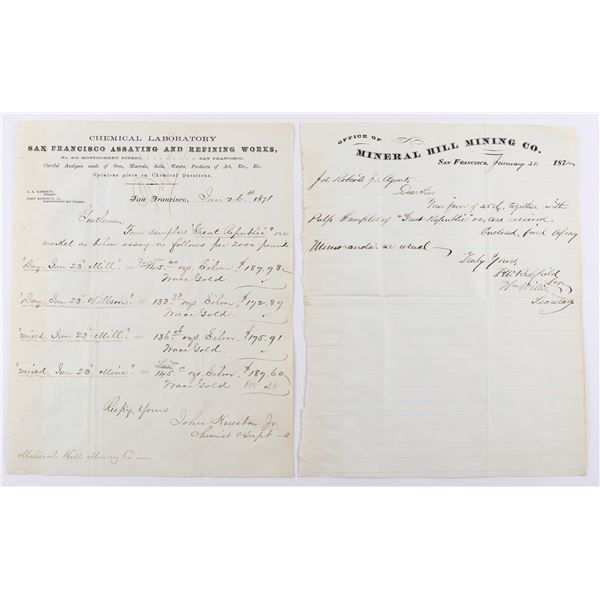 CHEMICAL LABORATORY
SAN FRANCISCO ASSAYING AND REFINING WORKS,
No. 416 MONTGOMERY STREET, SAN FRANCISCO.
Careful Analyses made of Ores, Minerals, Soils, Waters, Products of Art, Etc., Etc.
Opinions given on Chemical Questions.
San Francisco, Jan 26th 1871
Gentlemen
Four samples "Great Republic" ore
marked as below assay as follows per 2000 pounds
"Day Jan 23d Mill" = ozs Silver $187.93
Trace Gold
"Day Jan 23 Wilson" = 133.72 ozs Silver, $172.89
Trace Gold
"mixed Jan 23d Mill" = 136.06 ozs Silver $175.91
Trace Gold
"mixed Jan 23d Mine" = 145 ozs Silver, $187.60
Trace Gold
Respy Yours
John Hewston Jr.
Chemist & Supt
Mineral Hill Mining Co
OFFICE OF
MINERAL HILL MINING CO.
SAN FRANCISCO, January 187
Jos Roberts Jr Agent,
Dear Sir
Your favor of 23d, together with
Pulp Samples of "Great Republic" ore, are received.
Enclosed, find Assay
Memoranda as usual
Truly Yours,
Secretary